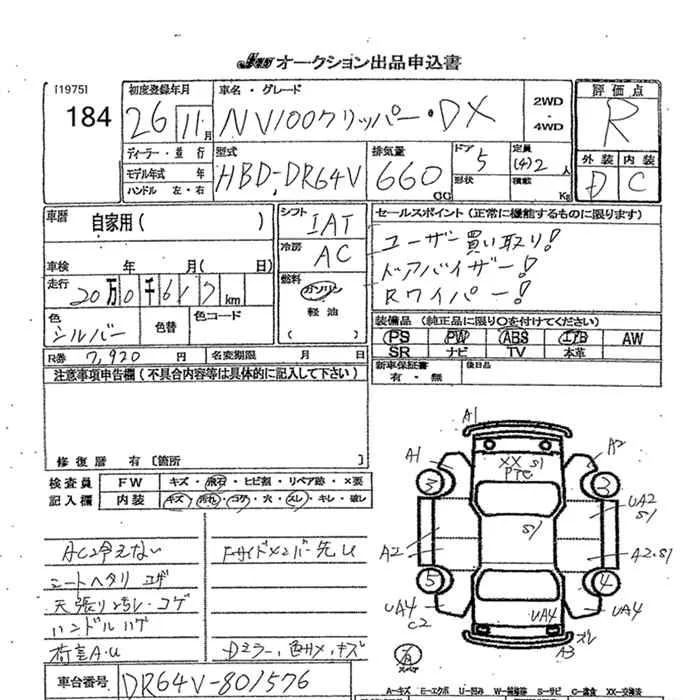 JU オークション出品申込書
[1975]
184
初度登録年月
26 11月
車名・グレード
NV100クリッパー・DX
2WD
・
4WD
評価点
R
ディーラー・並行
モデル年式 年
ハンドル 左・右
型式
HBD-DR64V
排気量
660 CC
ドア 5
形状
定員
(4)2 人
積載 Kg
外装 内装
D C
車歴
自家用( )
シフト
IAT
冷房
AC
セールスポイント(正常に機能するものに限ります)
ユーザー買い取り!
ドアバイザー!
Rワイパー!
車検 年 月( 日)
走行
20万0千617km
燃料
ガソリン
軽油
( )
色
シルバー
色替
色コード
装備品(純正品に限り○を付けてください)
PS PW ABS エアB AW
SR ナビ TV 本革
R券 7,920円
名変期限 月 日
新車保証書
有・無
後日品
注意事項申告欄(不具合内容等は具体的に記入して下さい)
修復歴 有〔箇所 〕
検査員
記入欄
FW
キズ・飛石・ヒビ割・リペア跡・×要
内装
キズ・汚れ・コゲ・穴・スレ・キレ・破レ
AC冷えない
Fサイドメンバー先U
シートヘタリ コゲ
天張り汚レ・コゲ
ハンドルハゲ
荷室A・U
Dミラー色サメ・キズ
A1
A1
A2
XX S1
PTC
3
3
UA2
S1
S1
A2
A2.S1
5
4
UA4
C2
UA4
UA4
スレ
A3
スペア
車台番号
DR64V-801576
A-キズ E-エクボ U-凹み W-補修跡 S-サビ C-腐食 XX-交換済